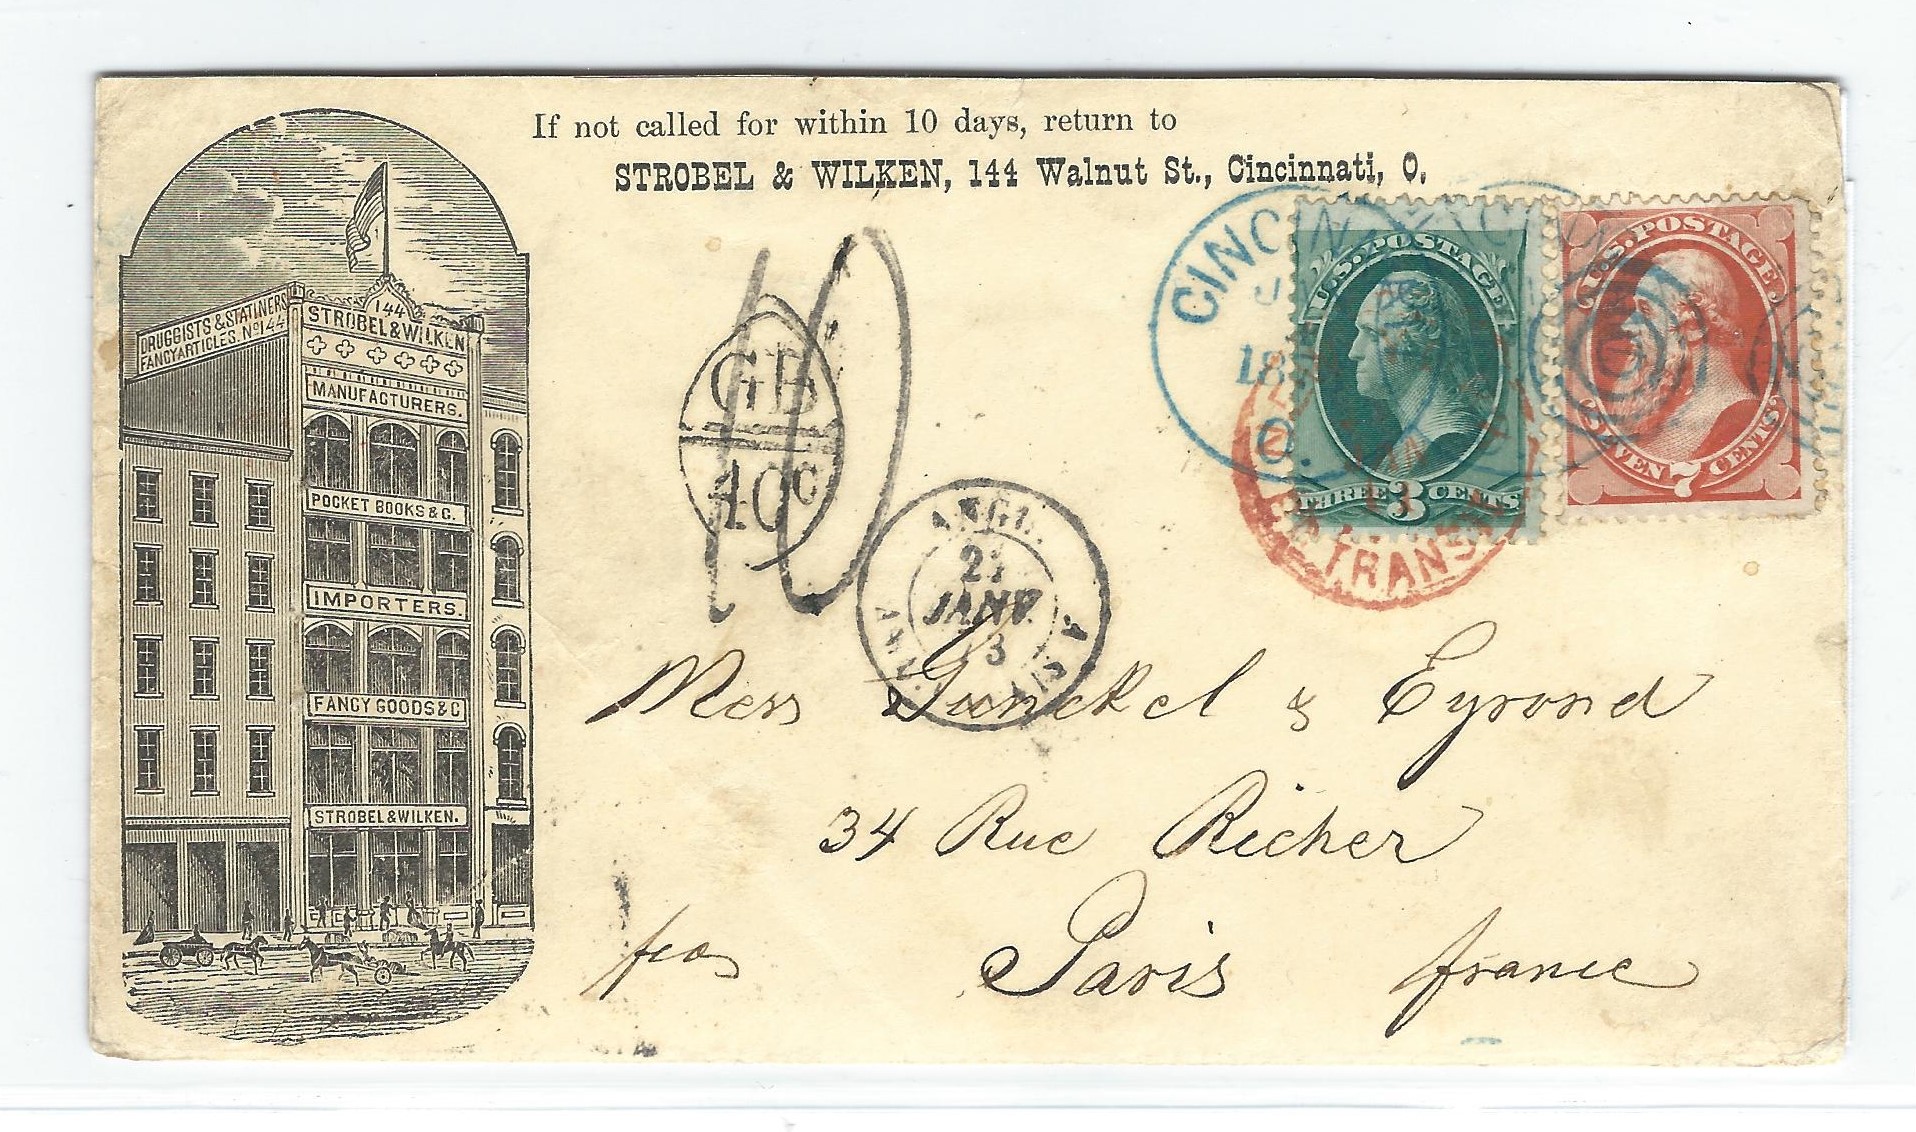 If not called for within 10 days, return to
STROBEL & WILKEN, 144 Walnut St., Cincinnati, O.
DRUGGISTS & STATINERS
FANCY ARTICLES. No 144
144
STROBEL & WILKEN
MANUFACTURERS.
POCKET BOOKS & C.
IMPORTERS.
FANCY GOODS & C
STROBEL & WILKEN.
GB
40c
ANGL.
JANV.
CINCINN
18
O.
U.S. POSTAGE
THREE 3 CENTS
U.S. POSTAGE
SEVEN 7 CENTS
TRANSIT
Mess Gunckel & Eyrond
34 Rue Richer
Paris france